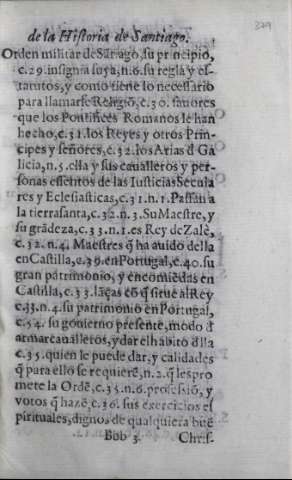 de la Historia de Santiago.
379
Orden militar de Sātiago, su principio,
c.29. insignia suya, n.6. su regla y es-
tatutos, y como tiene lo necessario
para llamarse Religiō, c.30. fauores
que los Pontifices Romanos le han
hecho, c.31. los Reyes y otros Prin-
cipes y señores, c.32. los Arias d̄ Ga
licia, n.5. ella y sus caualleros y per-
sonas essentos de las Iusticias Secula
res y Eclesiasticas, c.31. n.1. Passan a
la tierra santa, c.32. n.3. Su Maestre, y
su grādeza, c.33. n.1. es Rey de Zalè,
c.32. n.4. Maestres q̄ ha auido della
en Castilla, c.39. en Portugal, c.40. su
gran patrimonio, y encomiēdas en
Castilla, c.33. lāças cō q̄ sirue al Rey
c.33. n.4. su patrimonio en Portugal,
c.54. su gouierno presente, modo d̄
armar caualleros, y dar el habito d̄lla
c.35. quien le puede dar, y calidades
q̄ para ello se requierē, n.2. q̄ les pro
mete la Ordē, c.35. n.6. professiō, y
votos q̄ hazē, c.36. sus exercicios es
pirituales, dignos de qualquiera buē
Bbb 3. Chris-